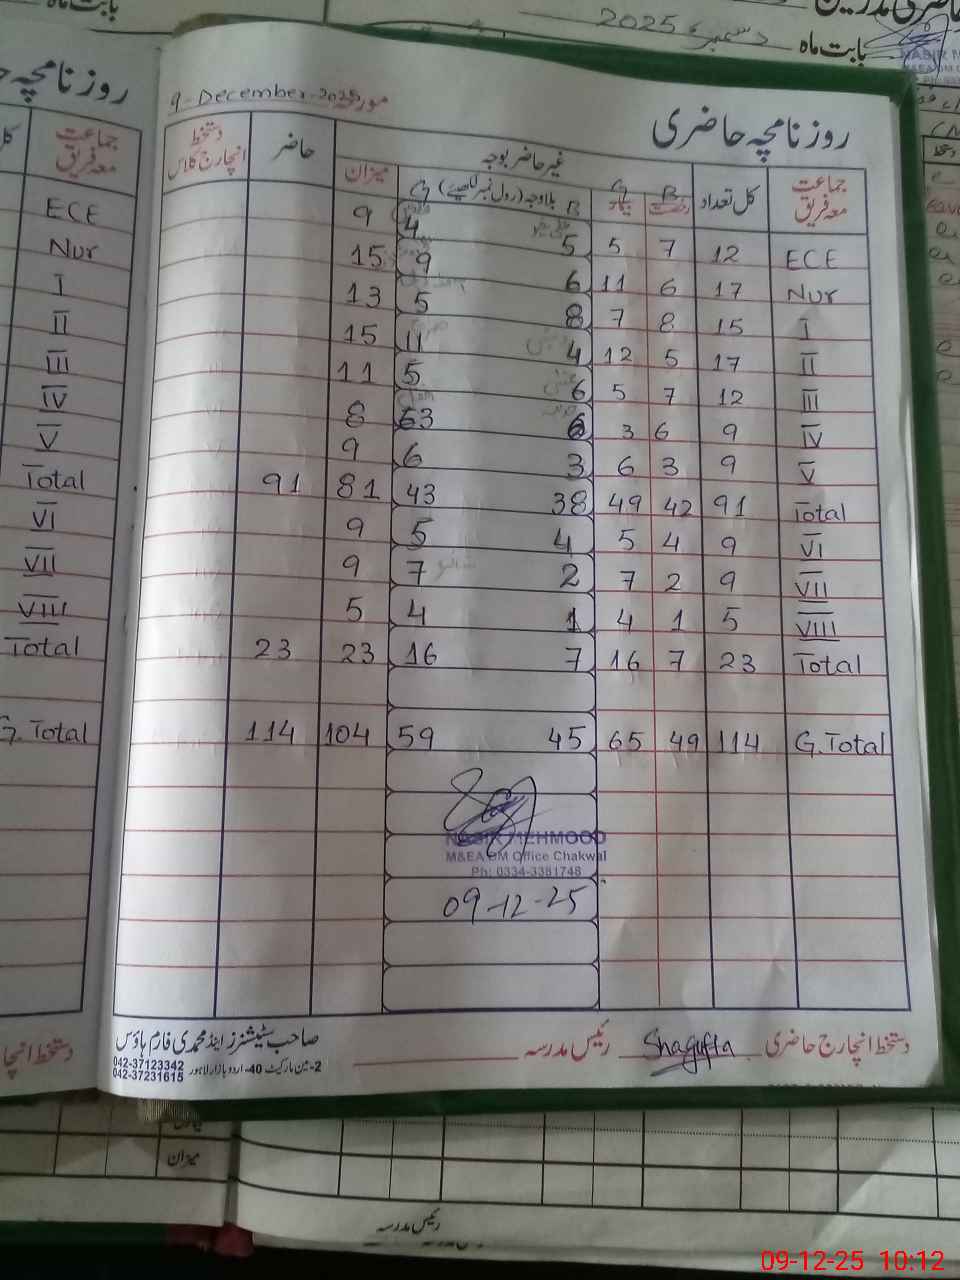 بابت ماہ دسمبر 2025
روزنامچہ حاضری
مورخہ 9-December-2025
جماعت معہ فریق | کل تعداد | B رخصت | G بیمار | غیر حاضر بوجہ | B بلاوجہ (رول نمبر لکھیئے) G | میزان | حاضر | دستخط انچارج کلاس
ECE 12 7 5 5 4 9
Nur 17 6 11 6 9 15
I 15 8 7 8 5 13
II 17 5 12 4 11 15
III 12 7 5 6 5 11
IV 9 6 3 6 3 8
V 9 3 6 3 6 9
Total 91 42 49 38 43 81 91
VI 9 4 5 4 5 9
VII 9 2 7 2 7 9
VIII 5 1 4 1 4 5
Total 23 7 16 7 16 23 23
G.Total 114 49 65 45 59 104 114
NASIR MEHMOOD
M&EA DM Office Chakwal
Ph: 0334-3381748
09-12-25
دستخط انچارج حاضری Shagufta رئیس مدرسہ
صاحب سٹیشنرز اینڈ محمدی فارم ہاؤس
2-مین مارکیٹ 40-اردو بازار لاہور
042-37123342
042-37231615
روزنامچہ حا
جماعت معہ فریق
ECE
Nur
I
II
III
IV
V
Total
VI
VII
VIII
Total
G.Total
دستخط انچا
میزان
رئیس مدرسہ
09-12-25 10:12